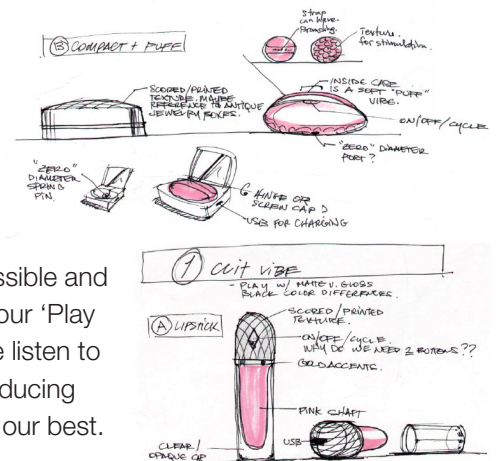 Strap
can have
Branding.
Texture
for stimulation.
(B) COMPACT + PUFF
SCORED/PRINTED
TEXTURE. MAYBE
REFERENCE TO ANTIQUE
JEWELRY BOXES.
INSIDE CASE
IS A SOFT "PUFF"
VIBE.
ON/OFF/CYCLE
"ZERO" DIAMETER
PORT?
"ZERO"
DIAMETER
SPRING
PIN.
HINGE OR
SCREW CAP
USB FOR CHARGING
ssible and
our 'Play
e listen to
ducing
our best.
1 Clit VIBE
- PLAY W/ MATTE V. GLOSS
BLACK COLOR DIFFERENCES.
(A) LIPSTICK
SCORED/PRINTED
TEXTURE.
ON/OFF/CYCLE.
WHY DO WE NEED 2 BUTTONS??
GOLD ACCENTS.
PINK SHAFT
USB
CLEAR/
OPAQUE CAP